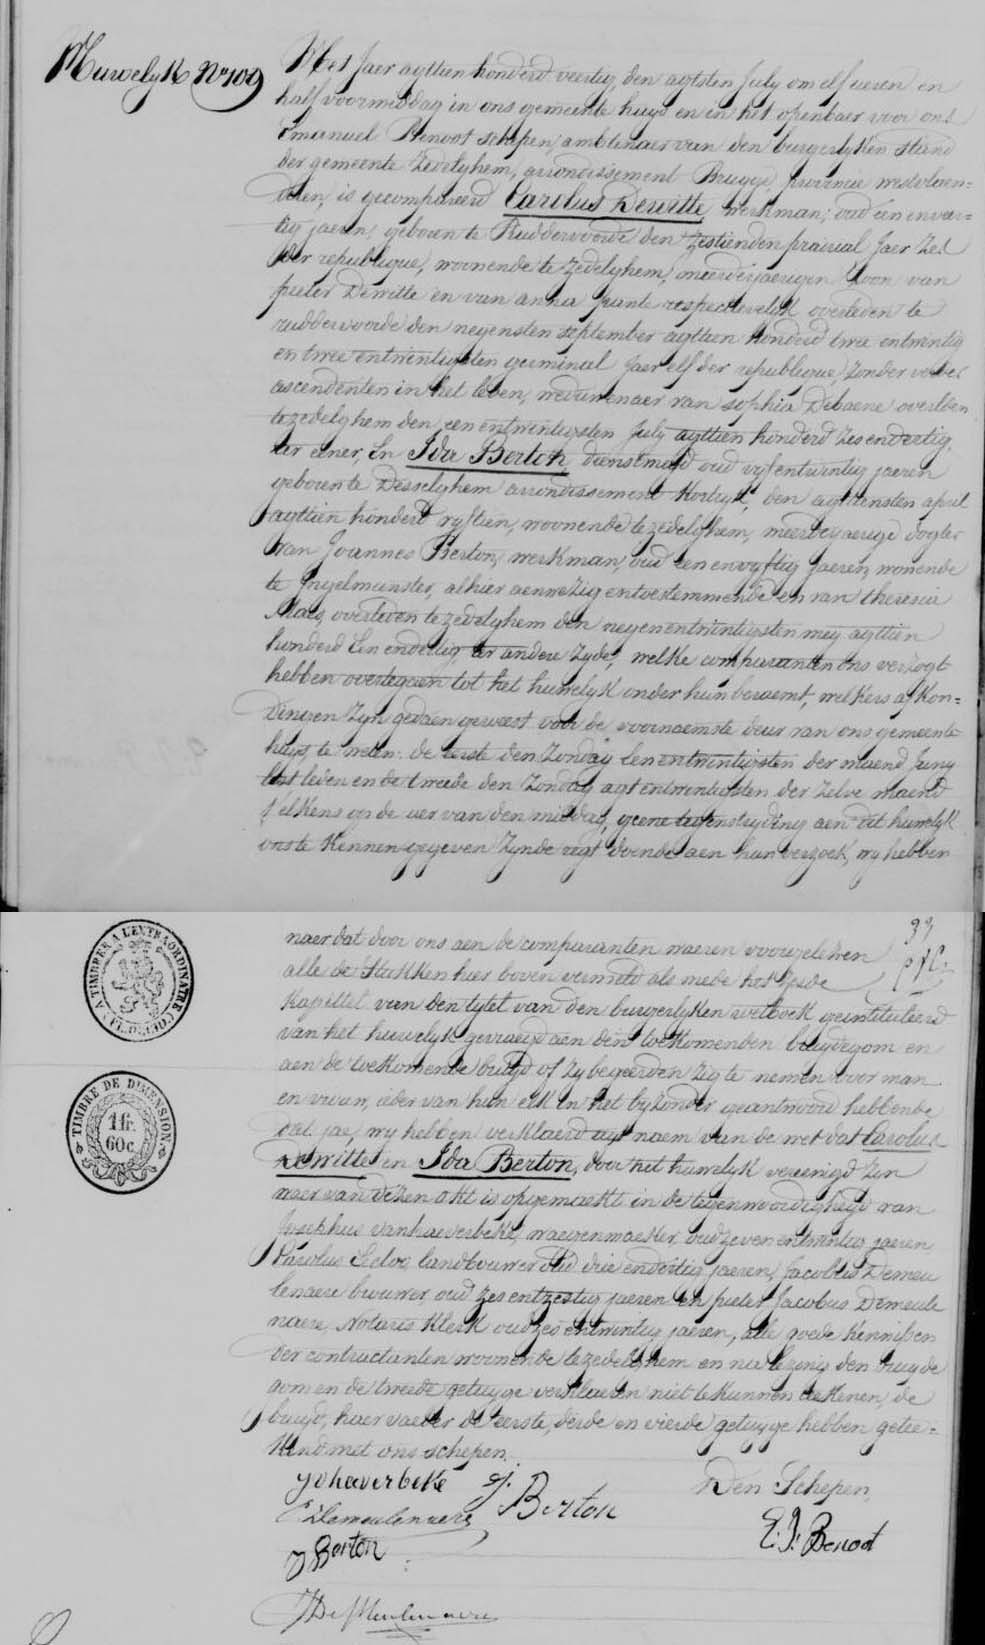 Huwelyk N° 109
Het Jaer agttien honderd veertig, den agtsten July om elf ueren en
half voormiddag in ons gemeente huys en in het openbaer voor ons
Emanuel Benoot schepen, ambtenaer van den burgerlyken stand
der gemeente Zedelghem, arrondissement Brugge, provincie westvlaen=
deren, is gecompareerd Carolus Dewitte, werkman, oud een en veer=
tig jaeren, geboren te Ruddervoorde den zestienden prairial Jaer Zes
der republique, woonende te Zedelghem, meerderjaerigen Zoon van
pieter Dewitte en van anna respectievelyk overleden te
rudderwoorde den negensten september agttien honderd twee entwintig
en twee entwintigsten germinal Jaer elf der republique, zonder verdere
ascendenten in het leven, weduwenaer van sophia Debaene overleden
te zedelghem den een entwintigsten July agttien honderd Zes endertig
ter eener, En Ida Berton, dienstmeyd oud vyf entwintig jaeren
geboren te Desselghem arrondissement Kortryk, den agttiensten april
agttien honderd vyftien, woonende te zedelghem, meerderjaerige dogter
van Joannes Berton, werkman, oud een envyftig Jaeren, wonende
te Ingelmunster, alhier aenwezig entoestemmende en van theresia
Maes overleden te zedelghem den negen entwintigsten mey agttien
honderd Een endertig, ter andere Zyde, welke comparanten ons verzogt
hebben overtegaen tot het huwelyk onder hun beraemt, welkers afkon=
dingen Zyn gedaen geweest voor de voornaemste deur van ons gemeente
huys, te weten: de eerste den Zondag een entwintigsten der maend Juny
lest leden en de tweede den Zondag agt entwintigsten der Zelve maend
telkens op de uer van den middag, geene tegenstryding aen dit huwelyk
ons te kennen gegeven Zynde regt doende aen hun verzoek, wy hebben
33
naer dat door ons aen de comparanten waeren voorgelezen
alle de stukken hier boven vermeld als mede het Zesde
Kapittel van den tytel van den burgerlyken wetboek geintituleerd
van het huwelyk gevraegd aen den toekomenden bruydegom en
aen de toekomende bruyd of Zy begeerden Zig te nemen voor man
en vrouw, ieder van hun elk in het byzonder geantwoord hebbende
dat jae, wy hebben verklaerd uyt naem van de wet dat Carolus
Dewitte en Ida Berton, door het huwelyk vereenigd Zyn
waer van dezen akt is opgemaekt in de tegenwoordigheyd van
Josephus vanhaverbeke, waegenmaeker oud zeven entwintig jaeren
Karolus landbouwer oud drie endertig jaeren, Jacobus Demeu
lenaere brouwer, oud zes entzestig jaeren en pieter Jacobus Demeule
naere, Notaris Klerk oud zes entwintig jaeren, alle goede kennissen
der contractanten woonende te zedelghem en na lezing den bruyde
gom en de tweede getuyge verklaeren niet te kunnen teekenen, de
bruyd, haer vaeder de eerste, derde en vierde getuyge hebben getee=
kend met ons schepen.
Den Schepen,
Berton
Demeulenaere
E. J. Benoot
J Berton
DeMeulenaere
A TIMBRER A L'EXTRAORDINAIRE
TIMBRE DE DIMENSION.
1 fr.
60 c.